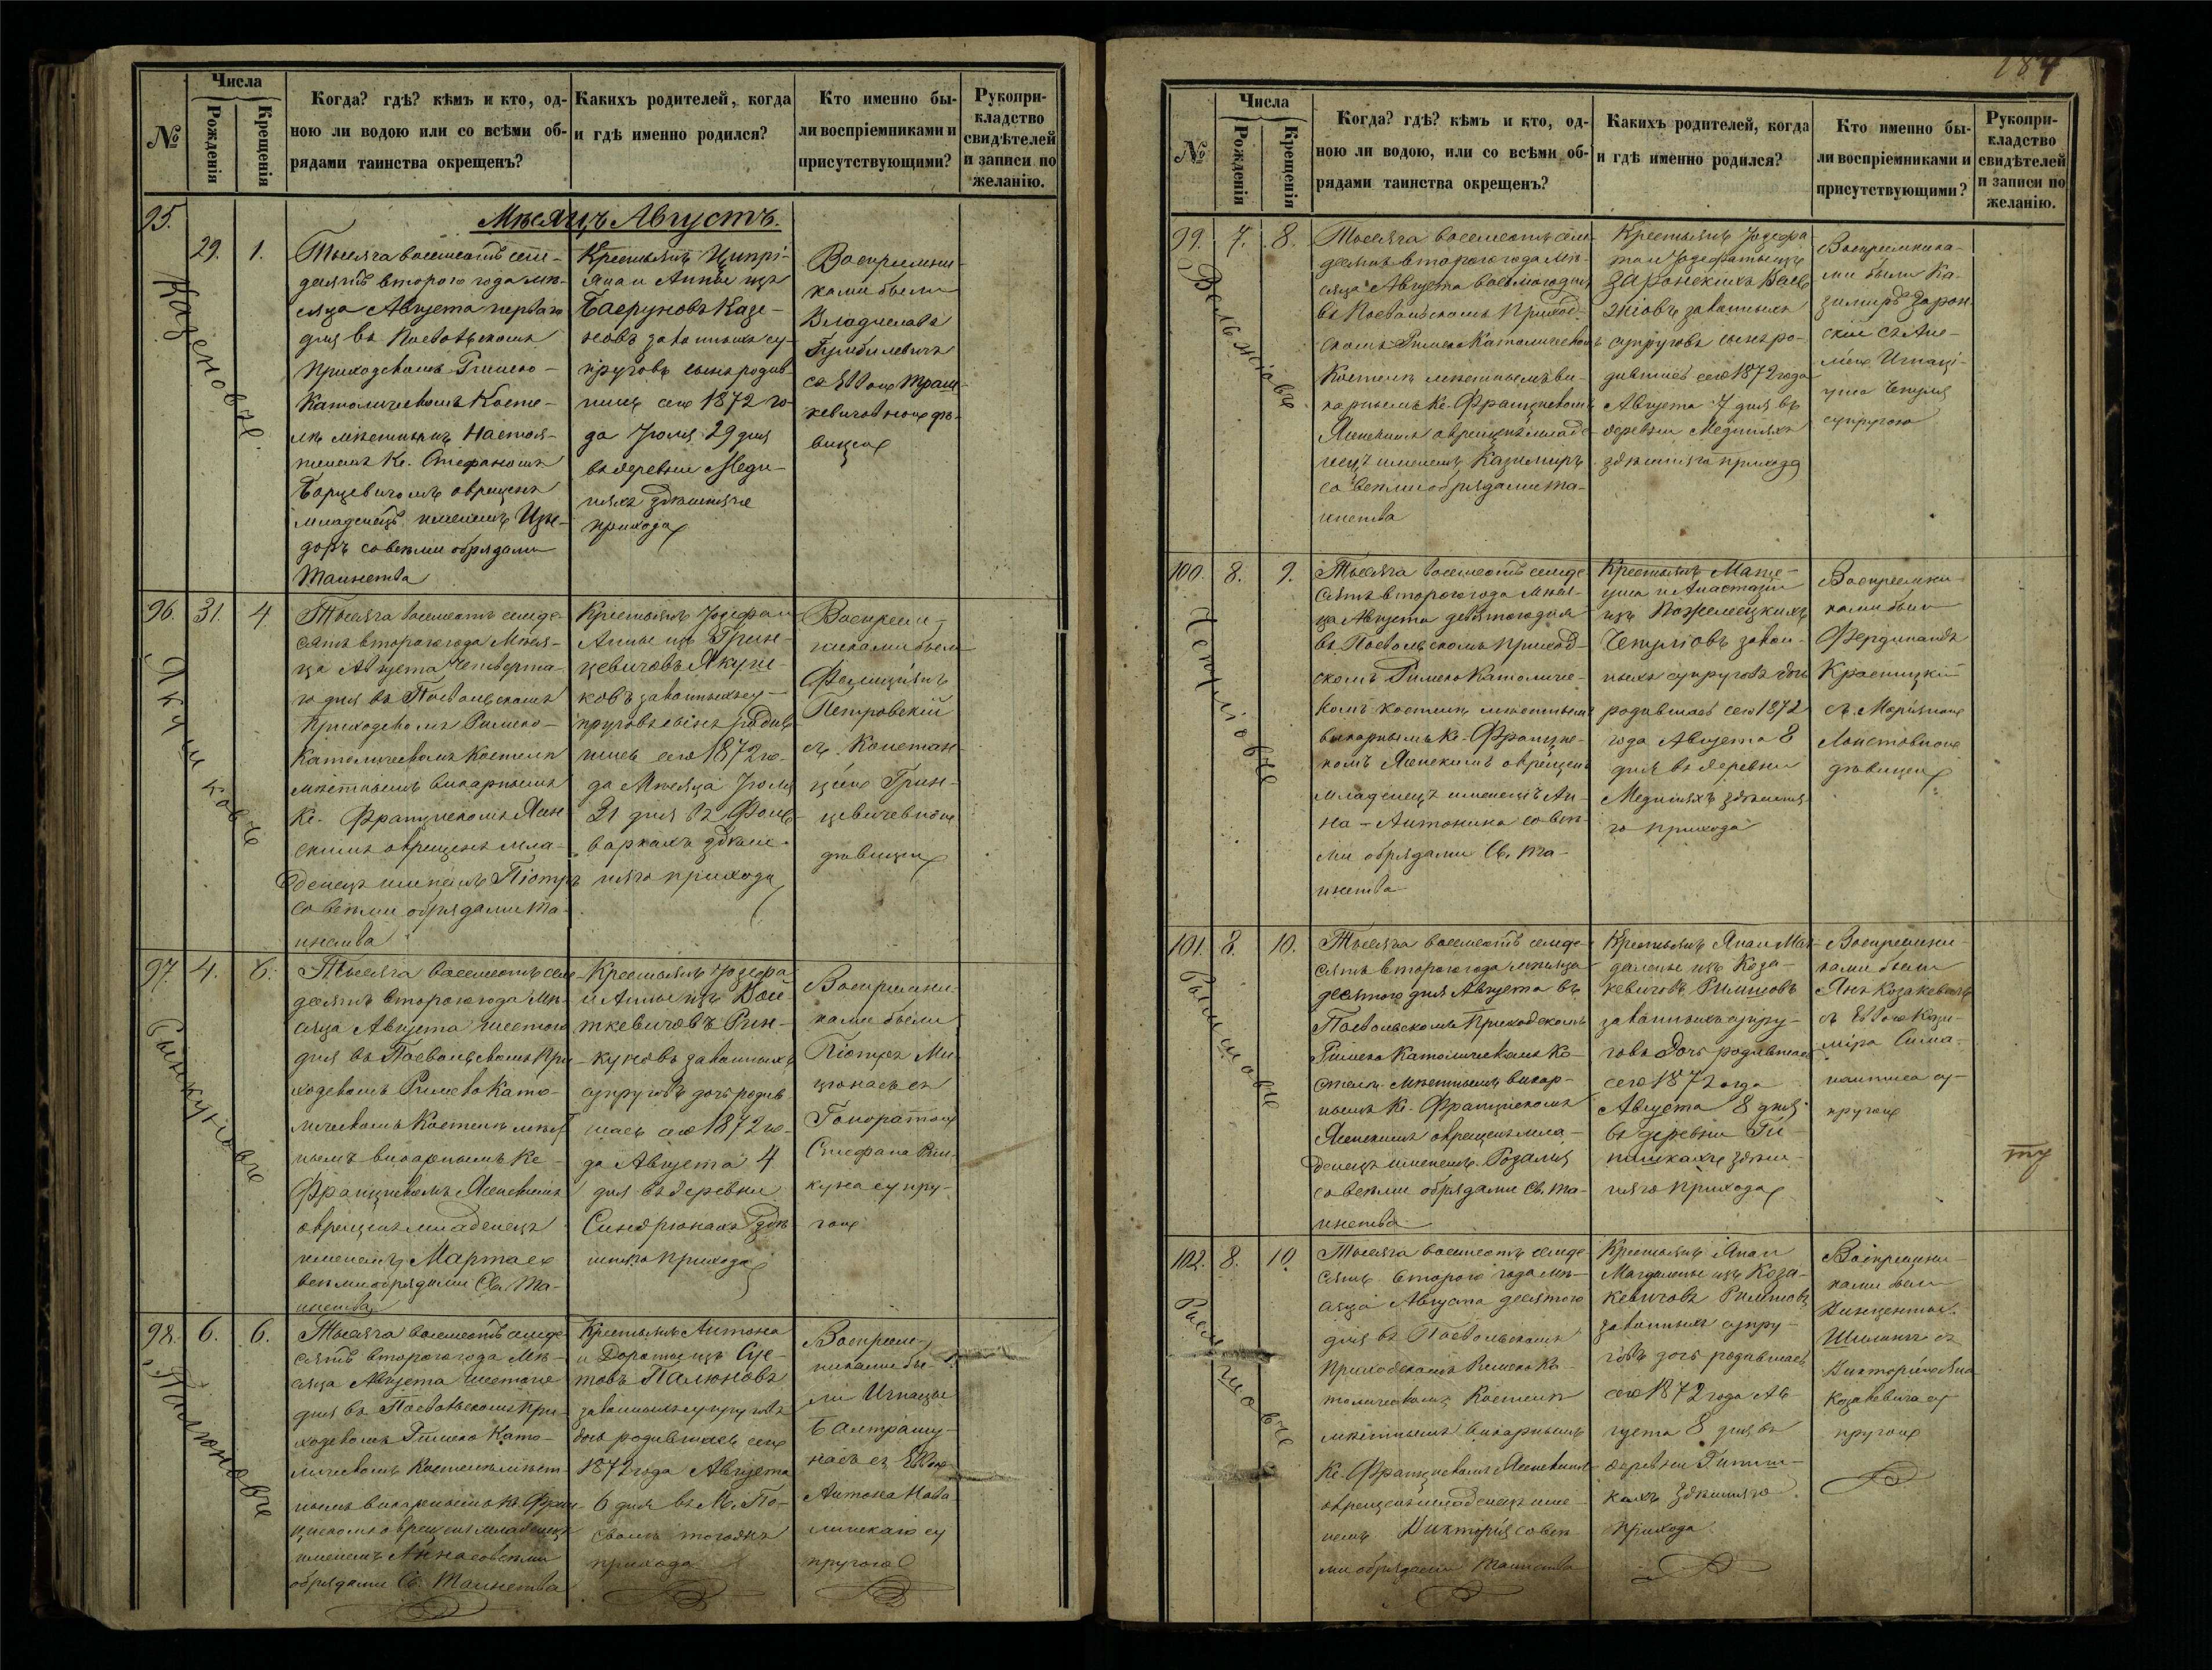 №
Числа
Рожденія
Крещенія
Когда? гдѣ? кѣмъ и кто, од-
ною ли водою или со всѣми об-
рядами таинства окрещенъ?
Какихъ родителей, когда
и гдѣ именно родился?
Кто именно бы-
ли воспріемниками и
присутствующими?
Рукопри-
кладство
свидѣтелей
и записи по
желанію.
Мѣсяцъ Августъ.
95.
29.
1.
Тысяча восемсотъ сем-
десятъ второго года мѣ-
сяца Августа перваго
дня въ Посвольскомъ
Приходскомъ Римско-
Католическомъ Косте-
лѣ мѣстнымъ Настоя-
телемъ Кс. Стефаномъ
окрещенъ
младенецъ именемъ Изи-
доръ со всѣми обрядами
Таинства
Крестьянъ Ципрі-
яна и Анны изъ
законныхъ су-
пруговъ сынъ родив-
шійся сего 1872 го-
да Іюля 29 дня
въ деревни Меди-
няхъ здѣшняго
прихода
Воспріемни-
ками были
Владиславъ
дѣ-
вицею
96.
31.
4.
Якушковъ
Тысяча восемсотъ семде-
сятъ второго года Мѣся-
ца Августа Четверта-
го дня въ Посвольскомъ
Приходскомъ Римско-
Католическомъ Костелѣ
мѣстнымъ викарнымъ
Кс. Францискомъ Ясен-
скимъ окрещенъ мла-
денецъ именемъ Піотръ
со всѣми обрядами та-
инства
Крестьянъ Іозефа и
Анны изъ Грин-
цевичовъ Якуш-
ковъ законныхъ су-
пруговъ сынъ родив-
шійся сего 1872 го-
да Мѣсяца Іюля
31 дня въ Фоль-
варкахъ здѣш-
няго прихода
Воспріем-
никами были
Фелиціянъ
Петровскій
съ Констан-
ціею Грин-
цевичевною
дѣвицею
97.
4.
6.
Тысяча восемсотъ сем-
десятъ второго года Мѣ-
сяца Августа шестого
дня въ Посвольскомъ При-
ходскомъ Римско Като-
лическомъ Костелѣ мѣст-
нымъ викарнымъ Кс.
Францискомъ Ясенскимъ
окрещенъ младенецъ
именемъ Марта со
всѣми обрядами Св. Та-
инства
Крестьянъ Іозефа
и Анны изъ Вой-
ткевичовъ Рин-
куновъ законныхъ
супруговъ дочь родив-
шаяся сего 1872 го-
да Августа 4
дня въ деревни
здѣ-
шняго прихода
Воспріемни-
ками были
Піотръ Ми-
цюнасъ съ
Гоноратою
Стефана Рин-
куна супру-
гою
98.
6.
6.
Палюновъ
Тысяча восемсотъ семде-
сятъ второго года Мѣ-
сяца Августа шестого
дня въ Посвольскомъ При-
ходскомъ Римско Като-
лическомъ Костелѣ мѣст-
нымъ викарнымъ Кс. Фран-
цискомъ окрещенъ младенецъ
именемъ Анна со всѣми
обрядами Св. Таинства
Крестьянъ Антона
и Дороты изъ
Палюновъ
законныхъ супруговъ
дочь родившаяся сего
1872 года Августа
6 дня въ М. По-
сволѣ тогожъ
прихода
Воспріем-
никами бы-
ли Игнацы
съ Евою
Антона
су
пругою
184
№
Числа
Рожденія
Крещенія
Когда? гдѣ? кѣмъ и кто, од-
ною ли водою, или со всѣми об-
рядами таинства окрещенъ?
Какихъ родителей, когда
и гдѣ именно родился?
Кто именно бы-
ли воспріемниками и
присутствующими?
Рукопри-
кладство
свидѣтелей
и записи по
желанію.
99.
7.
8.
Тысяча восемсотъ сем-
десятъ второго года мѣ-
сяца Августа восьмого дня
въ Посвольскомъ Приход-
скомъ Римско Католическомъ
Костелѣ мѣстнымъ ви-
карнымъ Кс. Францискомъ
Ясенскимъ окрещенъ младе-
нецъ именемъ Казимиръ
со всѣми обрядами та-
инства
Крестьянъ Іозефа-
та и Іозефаты изъ
Заронскихъ
законныхъ
супруговъ сынъ ро-
дившійся сего 1872 года
Августа 7 дня въ
деревни Мединяхъ
здѣшняго прихода
Воспріемника-
ми были Ка-
зимиръ Зарон-
скій съ
Игнаці-
уша
супругою
100.
8.
9.
Тысяча восемсотъ семде-
сятъ второго года Мѣся-
ца Августа девятого дня
въ Посвольскомъ Приход-
скомъ Римско Католиче-
комъ костелѣ мѣстнымъ
викарнымъ Кс. Францис-
комъ Ясенскимъ окрещенъ
младенецъ именемъ Ан-
на-Антонина со всѣ-
ми обрядами Св. Та-
инства
Крестьянъ Мате-
уша и Анастазіи
изъ
закон-
ныхъ супруговъ дочь
родившаяся сего 1872
года Августа 8
дня въ деревни
Мединяхъ здѣшня-
го прихода
Воспріемни-
ками были
Фердинандъ
Красницкій
съ Маріянною
дѣвицею
101.
8.
10.
Тысяча восемсотъ семде-
сятъ второго года мѣсяца
десятого дня Августа въ
Посвольскомъ Приходскомъ
Римско Католическомъ Ко-
стелѣ мѣстнымъ викар-
нымъ Кс. Францискомъ
Ясенскимъ окрещенъ мла-
денецъ именемъ Розалія
со всѣми обрядами Св. та-
инства
Крестьянъ Яна и Маг-
далены изъ Коза-
кевичовъ Римшовъ
законныхъ супру-
говъ дочь родившаяся
сего 1872 года
Августа 8 дня
въ деревни
здѣш-
няго прихода
Воспріемни-
ками были
Янъ Козакевичъ
съ Евою Кази-
міра
су-
пругою
102.
8.
10.
Тысяча восемсотъ семде-
сятъ второго года мѣ-
сяца Августа десятого
дня въ Посвольскомъ
Приходскомъ Римско Ка-
толическомъ Костелѣ
мѣстнымъ викарнымъ
Кс. Францискомъ Ясенскимъ
окрещенъ младенецъ име-
немъ Викторія со всѣ-
ми обрядами Таинства
Крестьянъ Яна и
Магдалены изъ Коза-
кевичовъ Римшовъ
законныхъ супру-
говъ дочь родившаяся
сего 1872 года Ав-
густа 8 дня въ
деревни
здѣшняго
прихода
Воспріемни-
ками были
Винцентый
съ
Козакевича су
пругою